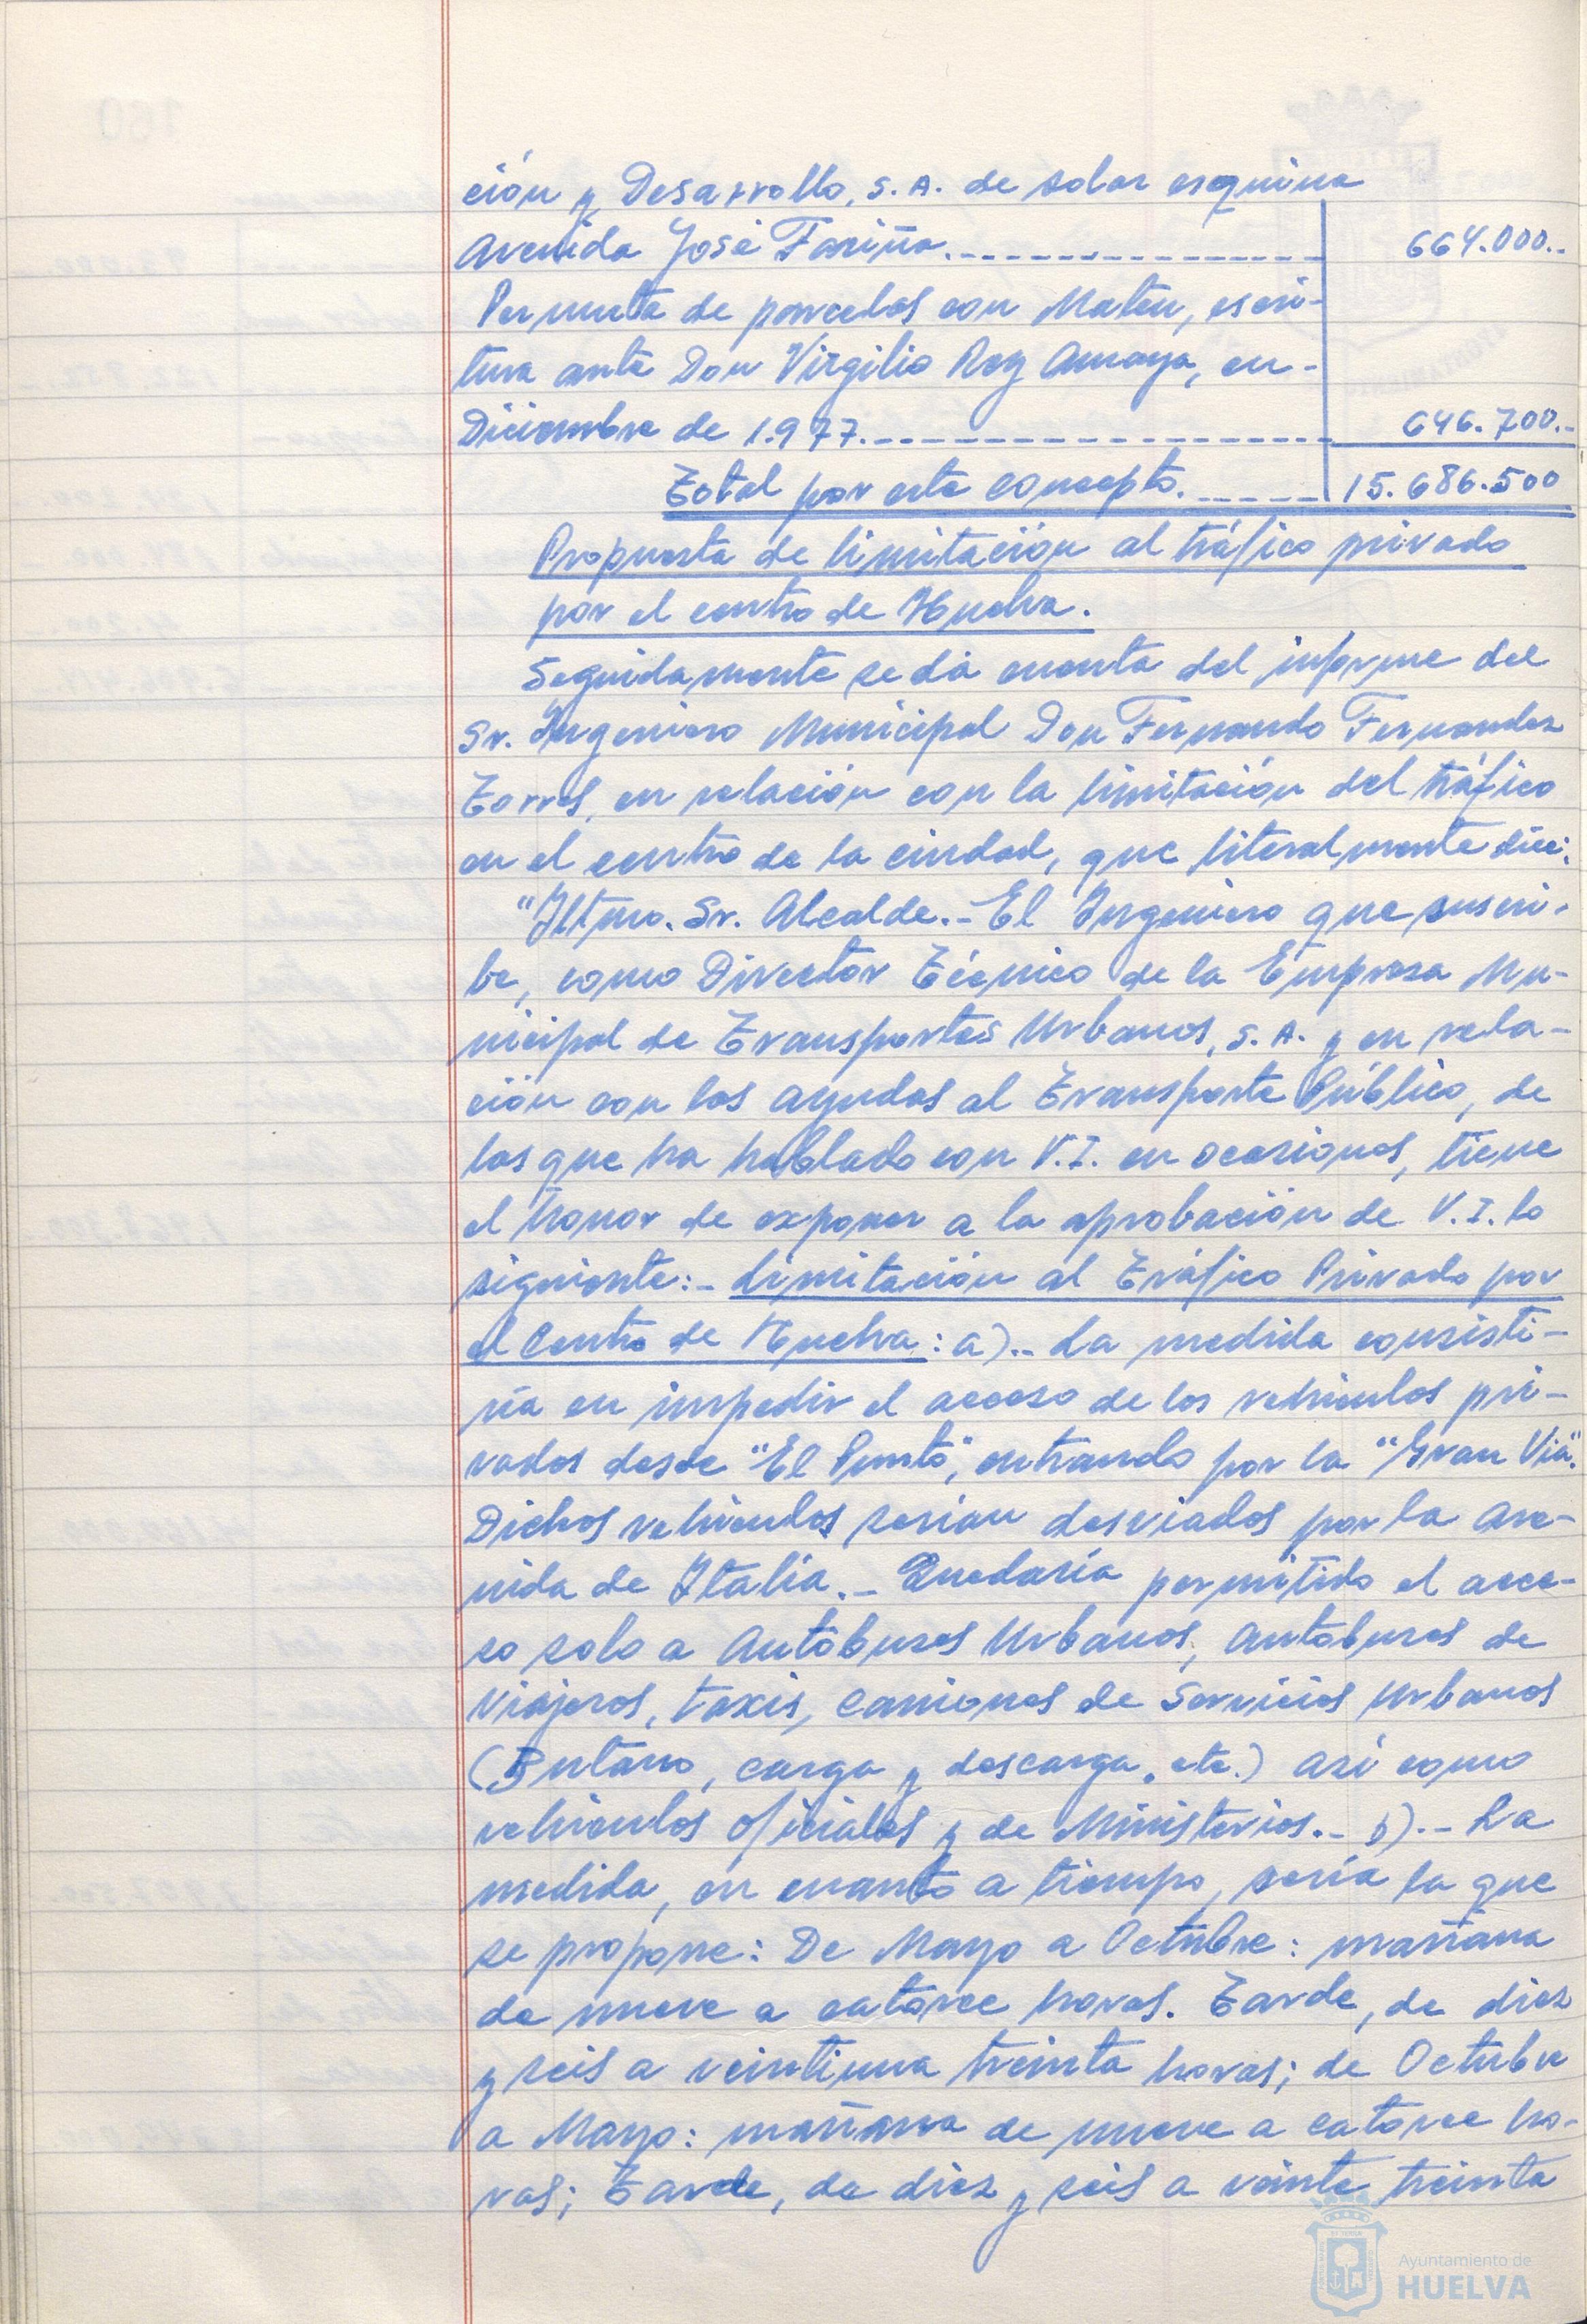 ción y Desarrollo, S.A. de solar esquina
Avenida José Fariña. 664.000.-
Permuta de parcelas con Mateu, escri-
tura ante Don Virgilio Rey Amaya, en-
Diciembre de 1.977. 646.700.-
Total por este concepto. 15.686.500
Propuesta de limitación al tráfico privado
por el centro de Huelva.
Seguidamente se dá cuenta del informe del
Sr. Ingeniero Municipal Don Fernando Fernandez
Torres, en relación con la limitación del tráfico
en el centro de la ciudad, que literalmente dice:
"Iltmo. Sr. Alcalde.- El Ingeniero que suscri-
be, como Director Técnico de la Empresa Mu-
nicipal de Transportes Urbanos, S.A. y en rela-
ción con las ayudas al Transporte Público, de
las que ha hablado con V.I. en ocasiones, tiene
el honor de exponer a la aprobación de V.I. lo
siguiente:- Limitación al Tráfico Privado por
el Centro de Huelva: a).- La medida consisti-
ría en impedir el acceso de los vehículos pri-
vados desde "El Punto", entrando por la "Gran Via".
Dichos vehículos serian desviados por la Ave-
nida de Italia.- Quedaría permitido el acce-
so solo a Autobuses Urbanos, Autobuses de
Viajeros, taxis, camiones de Servicios Urbanos
(Butano, carga y descarga, etc.) asi como
vehículos oficiales y de Ministerios.- b).- La
medida, en cuanto a tiempo, sería la que
se propone: De Mayo a Octubre: mañana
de nueve a catorce horas. Tarde, de diez
y seis a veintiuna treinta horas; de Octubre
a Mayo: mañana de nueve a catorce ho-
ras; Tarde, de diez y seis a veinte treinta
Ayuntamiento de
HUELVA